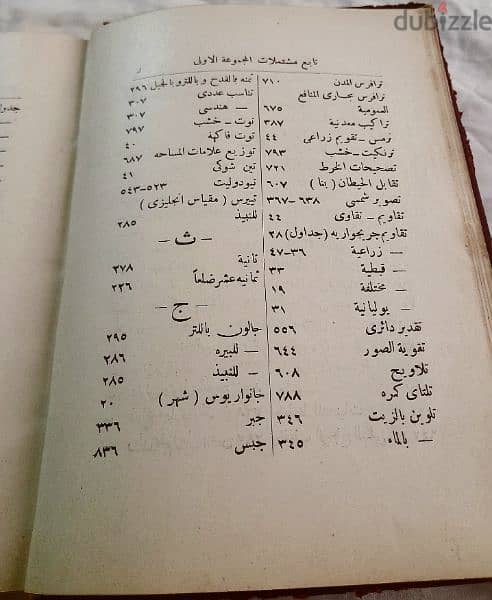 dubizzle
تابع مشتملات المجموعة الاولى
ر
ترافرس المدن ٧١٠
ترافرس مجارى المنافع
العمومية ٦٧٥
تراكيب معدنية ٣٨٧
ترمس – تقويم زراعى ٤٤
ترنكيت – خشب ٧٩٣
تصحيحات الخرط ٧٢١
تقابل الحيطان ( بنا ) ٦٠٧
تصوير شمسى ٦٣٨–٣٦٧
تقاويم – نقاوى ٤٤
تقاويم جريجواريه (جداول) ٢٨
— زراعية ٣٦–٤٧
— قبطية ٣٣
— مختلفة ١٩
— يوليانية ٣١
تقدير دائرى ٥٥٦
تقوية الصور ٦٤٤
تلاويح ٦٠٨
تلتاى كمره ٧٨٨
تلوين بالزيت ٣٤٦
— بالماء ٣٤٥
تمنه بالقدح و باللترو بالجيل ٢٩٦
تناسب عددى ٣٠٧
— هندسى ٣٠٧
توت – خشب ٧٩٧
توت فاكهة ٤٠
توزيع علامات المساحه ٦٨٧
تين شوكى ٤١
تيودوليت ٥٢٣–٥٤٣
تييرس ( مقياس انجليزى )
للنبيذ ٢٨٥
– ث –
ثانية ٢٧٨
ثمانيه عشر ضلعاً ٢٢٦
– ج –
جالون باللتر ٢٩٥
— للبيره ٢٨٦
— للنبيذ ٢٨٥
جانواريوس ( شهر ) ٢٠
جبر ٣٣٦
جبس ٨٣٦
جدول